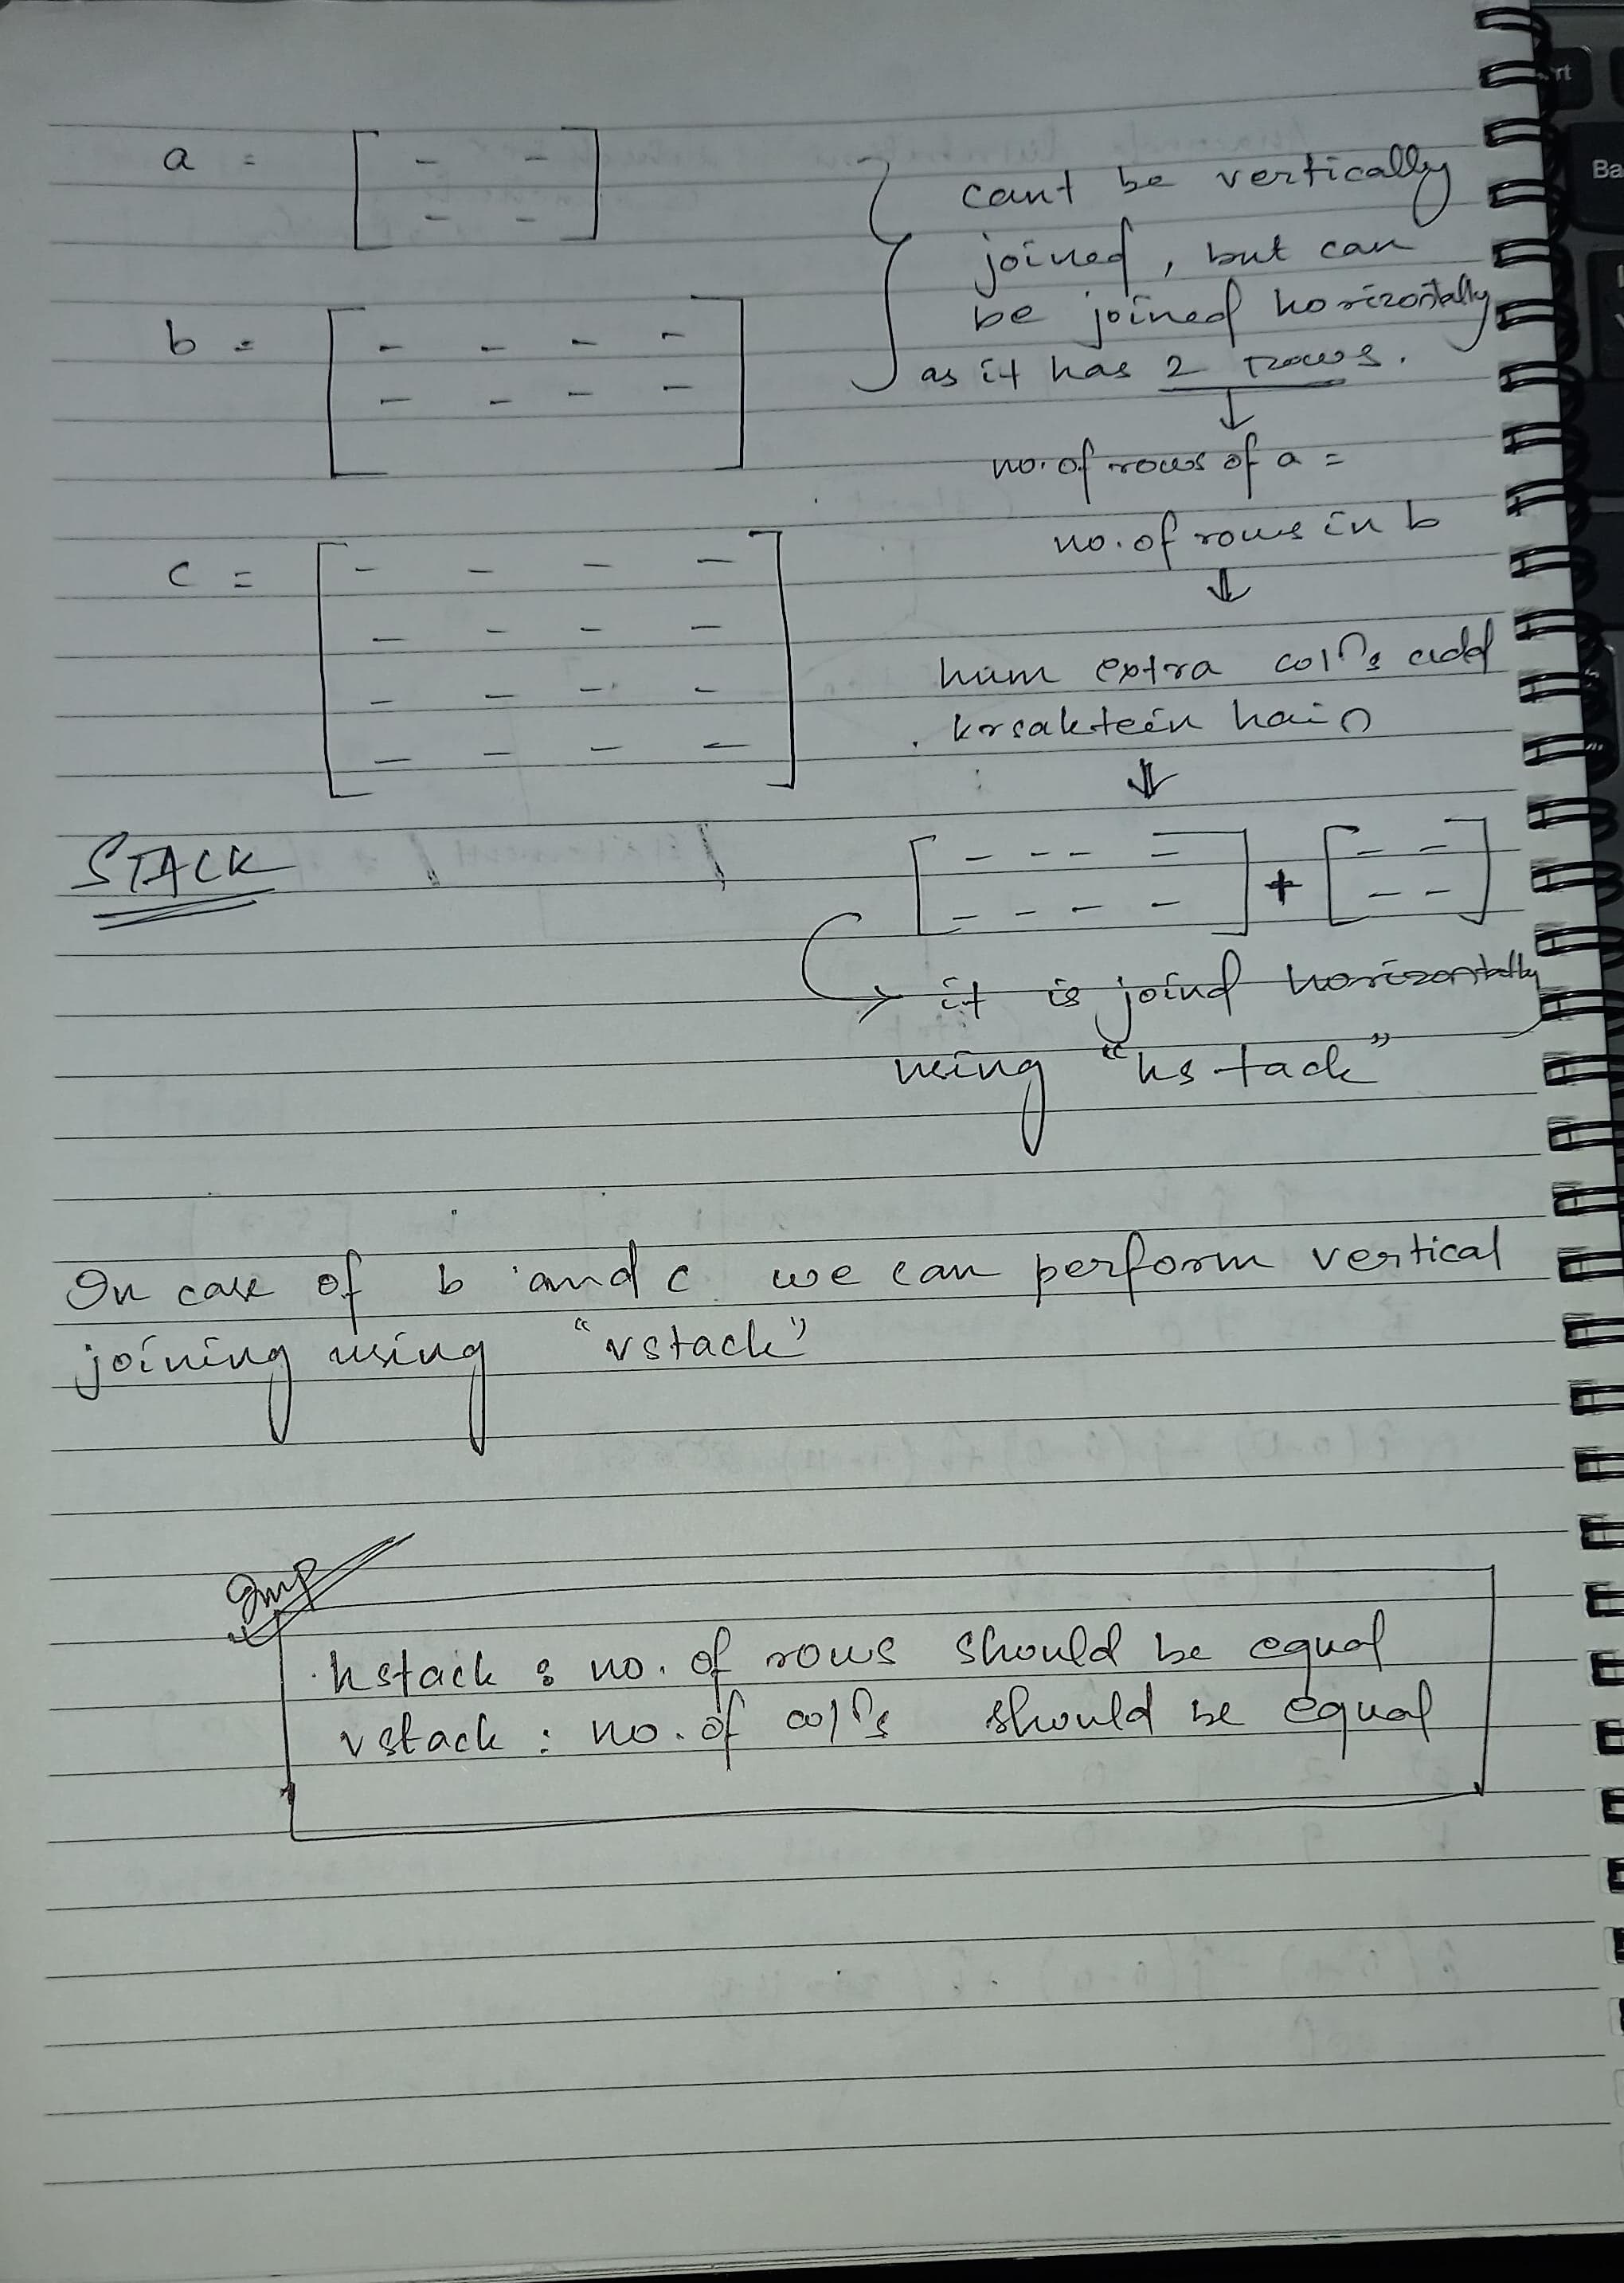 a =
[ - -
- - ]
can't be vertically
joined, but can
be joined horizontally
as it has 2 rows.
b =
[ - - - -
- - - - ]
↓
no. of rows of a =
no. of rows in b
⇓
c =
[ - - - -
- - - -
- - - -
- - - - ]
hum extra colns add
krsaktein hain
⇓
STACK
[ - - - - - - - - ] + [ - - - - ]
→ it is joind horizontally
using "hstack"
In case of b and c we can perform vertical
joining using "vstack"
Imp
hstack : no. of rows should be equal
vstack : no. of colns should be equal